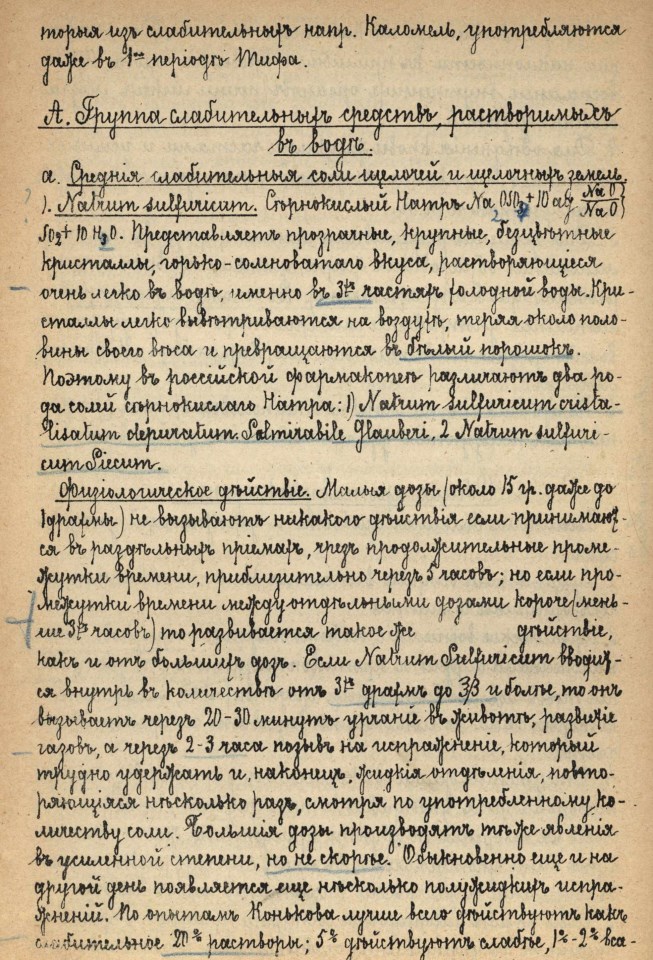 торыя изъ слабительныхъ напр. Каломел, употребляются
даже въ 1ᵒᵐ періодѣ Тифа.
А. Группа слабительныхъ средствъ, растворимыхъ
въ водѣ.
а. Среднія слабительныя соли щелочей и щелочныхъ земель.
1. Natrum sulfuricum. Сѣрнокислый Натръ Na OSO3 + 10 aq Na O } Na O }
SO2 + 10 H2O. Представляетъ прозрачные, крупные, безцвѣтные
кристаллы, горько-соленоватаго вкуса, растворяющіеся
очень легко въ водѣ, именно въ 3ᵡᵗ частяхъ холодной воды. Кри-
сталлы легко вывѣтриваются на воздухѣ, теряя около поло-
вины своего вѣса и превращаются въ бѣлый порошокъ.
Поэтому въ россійской фармакопеѣ различаютъ два ро-
да солей сѣрнокислаго Натра: 1) Natrum sulfuricum crista-
lisatum depuratum. Salmirabile Glauberi, 2 Natrum sulfuri-
cum Siecum.
Физіологическое дѣйствіе. Малыя дозы (около 15 гр. даже до
1 драхмы) не вызываютъ никакого дѣйствія если принимают-
ся въ раздѣльныхъ пріемахъ, чрезъ продолжительные проме-
жутки времени, приблизительно черезъ 5 часовъ; но если про-
межутки времени между отдѣльными дозами короче (мень-
ше 3ᵡᵗ часовъ) то развивается такое же дѣйствіе,
какъ и отъ большихъ дозъ. Если Natrum Sulfuricum вводит-
ся внутрь въ количествѣ отъ 3ᵡᵗ драхмъ до ℥β и болѣе, то онъ
вызываетъ черезъ 20-30 минутъ урчаніе въ животѣ, развитіе
газовъ, а черезъ 2-3 часа позывъ на испражненіе, который
трудно удержать и, наконецъ, жидкія отдѣленія, повто-
ряющіяся нѣсколько разъ, смотря по употребленному ко-
личеству соли. Большія дозы производятъ тѣже явленія
въ усиленной степени, но не скорѣе. Обыкновенно еще и на
другой день появляется еще нѣсколько полужидкихъ испра-
жненій. По опытамъ Конькова лучше всего дѣйствуютъ какъ
слабительное 20% растворы; 5% дѣйствуютъ слабѣе, 1%-2% вса-